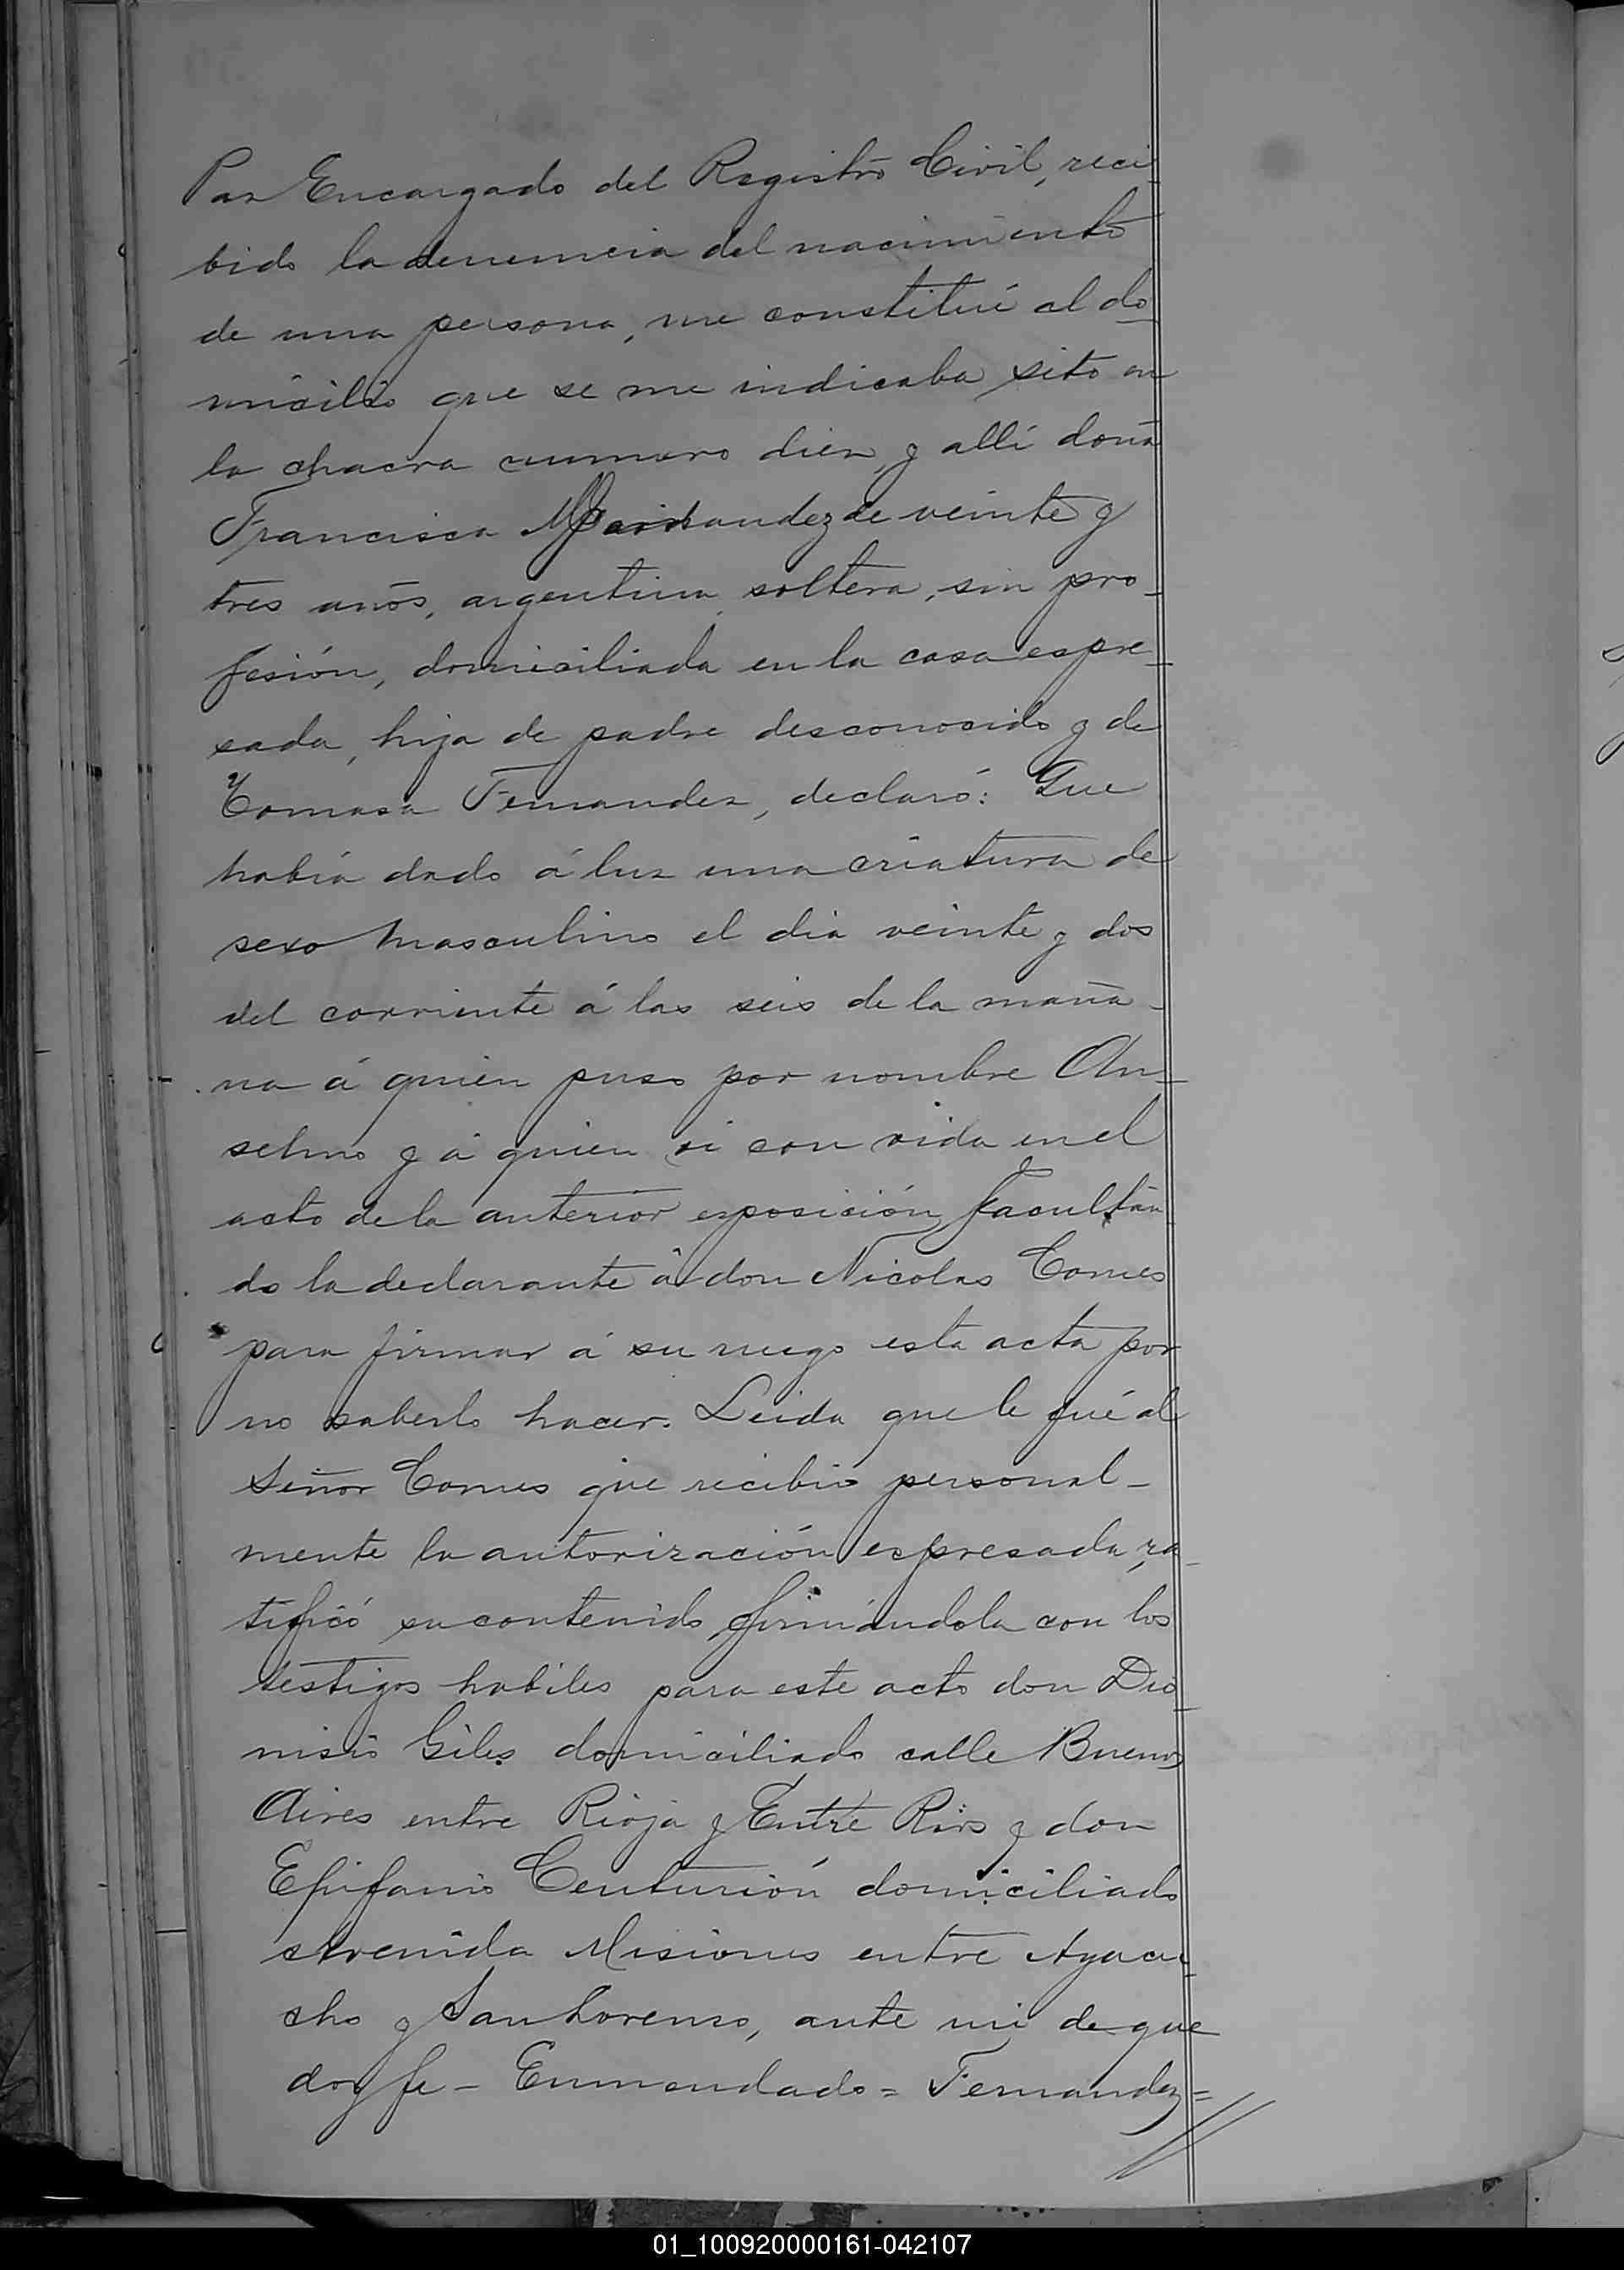 Paz Encargado del Registro Civil, reci-
bido la denuncia del nacimiento
de una persona, me constitui al do-
micilio que se me indicaba sito en
la chacra cunmero diez, y allí doña
Francisca de veinte y
tres años, argentina, soltera, sin pro-
fesión, domiciliada en la casa espre-
sada, hija de padre desconocido y de
Tomasa Fernandez, declaró: Que
había dado á luz una criatura de
sexo masculino el dia veinte y dos
del corriente á las seis de la maña-
na á quien puso por nombre An-
selmo y á quien vi con vida en el
acto de la anterior esposición, facultan
do la declarante á don Nicolas Comes
para firmar á su ruego esta acta por
no saberlo hacer. Leida que le fué al
Señor Comes que recibio personal-
mente la autorización espresada, ra-
tificó su contenido firmándola con los
testigos habiles para este acto don Dio-
nisio Giles domiciliado calle Buenos
Aires entre Rioja y Entre Rios y don
Epifanio Centurión domiciliado
avenida Misiones entre Ayacu-
cho y San Lorenzo, ante mi de que
doy fe - Enmendado = Fernandez =
01_100920000161-042107